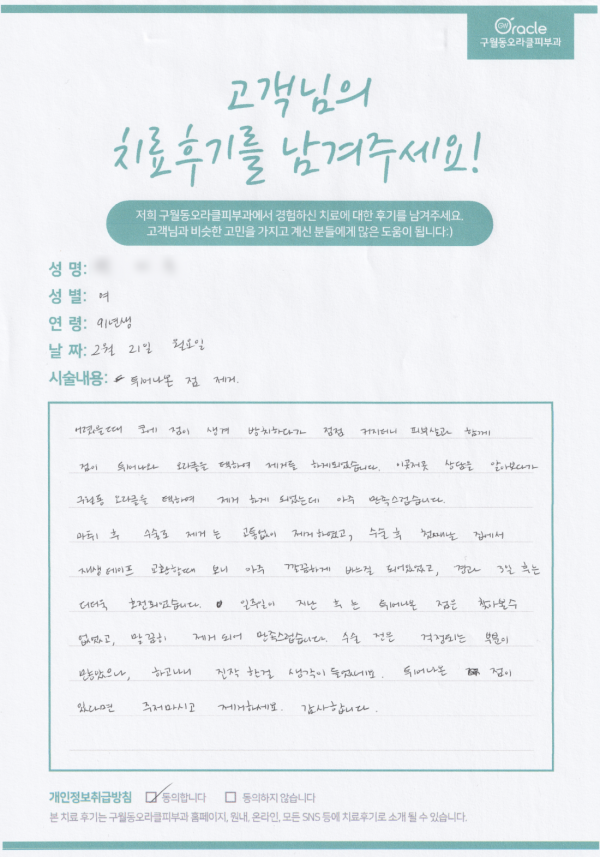 Oracle
구월동오라클피부과
고객님의
치료후기를 남겨주세요!
저희 구월동오라클피부과에서 경험하신 치료에 대한 후기를 남겨주세요.
고객님과 비슷한 고민을 가지고 계신 분들에게 많은 도움이 됩니다:)
성 명:
성 별: 여
연 령: 91년생
날 짜: 2월 21일 월요일
시술내용: 튀어나온 점 제거.
어렸을때 코에 점이 생겨 방치하다가 점점 커지더니 피부살과 함께
점이 튀어나와 오라클을 택하여 제거를 하게되었습니다. 이곳저곳 상담을 알아보다가
구월동 오라클을 택하여 제거 하게 되었는데 아주 만족스럽습니다.
마취 후 수술로 제거는 고통없이 제거하였고, 수술 후 첫째날 집에서
재생테이프 교환할때 보니 아주 깔끔하게 바느질 되어있었고, 경과 3일 후는
더더욱 호전되었습니다. 일주일이 지난 후는 튀어나온 점은 찾아볼수
없었고, 말끔히 제거되어 만족스럽습니다. 수술 전은 걱정되는 부분이
많았으나, 하고나니 진작 한걸 생각이 들었네요. 튀어나온 점이
있다면 주저마시고 제거하세요. 감사합니다.
개인정보취급방침 동의합니다 동의하지 않습니다
본 치료 후기는 구월동오라클피부과 홈페이지, 원내, 온라인, 모든 SNS 등에 치료후기로 소개 될 수 있습니다.